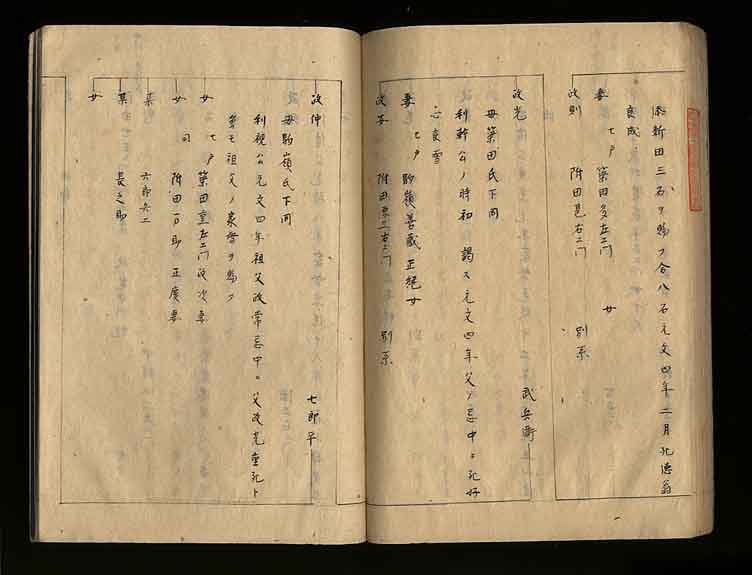 添新田三石ヲ賜フ合八石元文四年二月死徳翁
良成
妻 七戸 簗田多左エ門 女
政則 附田甚右エ門 別系
政光 武兵衛
母簗田氏下同
利幹公ノ時初謁ス元文四年父ノ忌中ニ死好
心良雪
妻 七戸 駒嶺善蔵正紀女
政 附田 右エ門 別系
政仲 七郎平
母駒嶺氏下同
利視公元文四年祖父政常忌中ニ父政光重死ト
祖父ノ家督ヲ賜フ
女 七戸 簗田重左エ門政次妻
女 同 附田 助正広妻
某 六郎
某 長之助
女